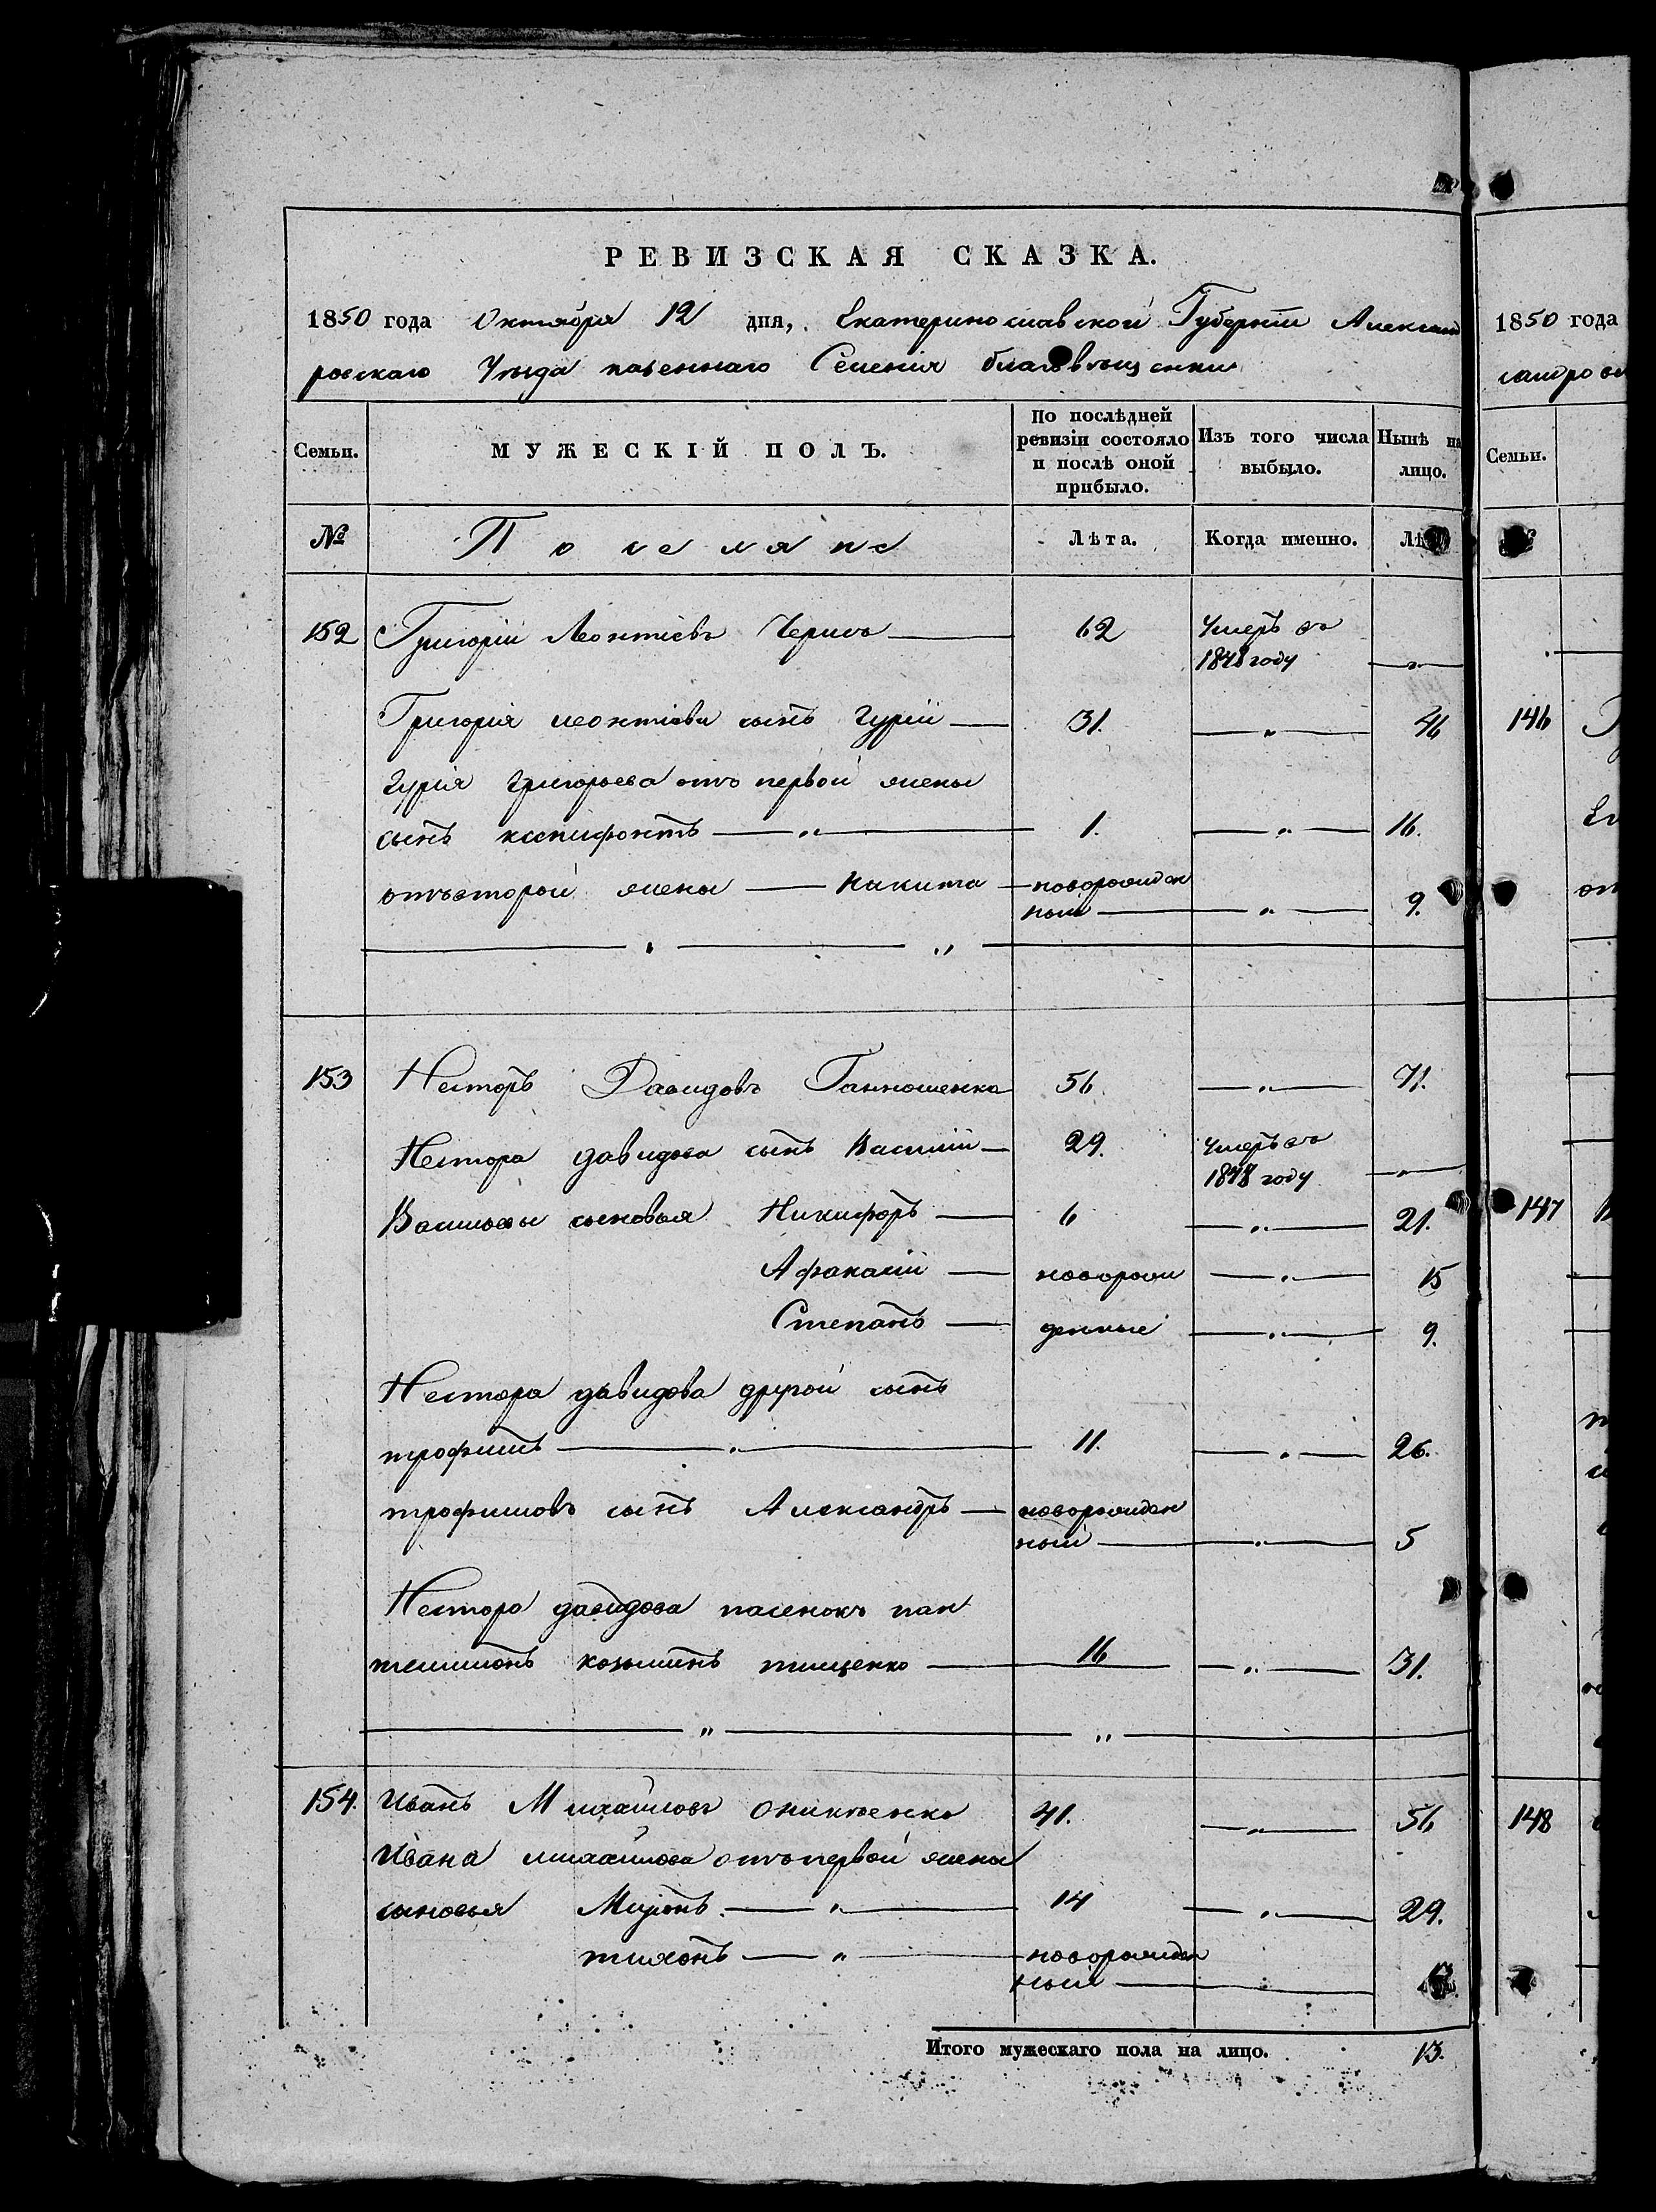 РЕВИЗСКАЯ СКАЗКА.
1850 года Октября 12 дня, Екатеринославской Губерніи Александ
ровскаго Уѣзда казеннаго Селенія благовѣщенки
Семьи.
МУЖЕСКІЙ ПОЛЪ.
По послѣдней ревизіи состояло и послѣ оной прибыло.
Изъ того числа выбыло.
Нынѣ на лицо.
№ Поселяне Лѣта. Когда именно. Лѣ
152 Григорій Леонтіевъ 62 Умеръ въ
1848 году "
Григорія леонтіева сынъ Гурій 31. " 46
Гурія Григорьева отъ первой жены
сынъ ксенифонтъ " 1. " 16.
отъ второй жены Никита новорожден
ный " 9.
" "
153 Несторъ Давидовъ 56. " 71.
Нестора давидова сынъ Василій 29. Умеръ въ
1848 году "
Васильевы сыновья Никифоръ 6 " 21.
Афанасій новорож " 15
Степанъ денные " 9.
Нестора давидова другой сынъ
трофимъ " 11. " 26.
трофимовъ сынъ Александръ новорожден
ный " 5
Нестора давидова пасенокъ пан
телимонъ козьминъ тищенко 16 " 31.
" "
154. Иванъ Михайловъ 41. " 56
Ивана михайлова отъ первой жены
сыновья Миронъ " 14 " 29.
тихонъ " новорожден
ный "
Итого мужескаго пола на лицо. 13.
1850 года
сандров
Семьи.
146
147
148